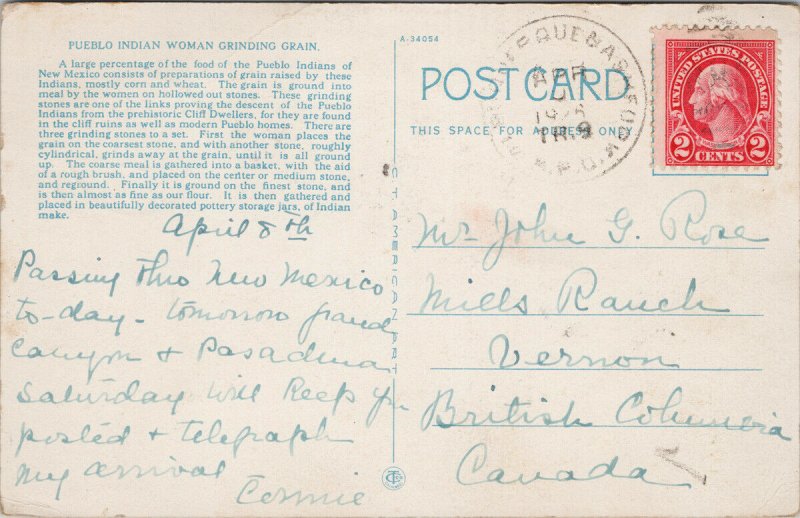 PUEBLO INDIAN WOMAN GRINDING GRAIN.
A large percentage of the food of the Pueblo Indians of
New Mexico consists of preparations of grain raised by these
Indians, mostly corn and wheat. The grain is ground into
meal by the women on hollowed out stones. These grinding
stones are one of the links proving the descent of the Pueblo
Indians from the prehistoric Cliff Dwellers, for they are found
in the cliff ruins as well as modern Pueblo homes. There are
three grinding stones to a set. First the woman places the
grain on the coarsest stone, and with another stone, roughly
cylindrical, grinds away at the grain, until it is all ground
up. The coarse meal is gathered into a basket, with the aid
of a rough brush, and placed on the center or medium stone,
and reground. Finally it is ground on the finest stone, and
is then almost as fine as our flour. It is then gathered and
placed in beautifully decorated pottery storage jars, of Indian
make.
April 8th
Passing thro New Mexico
to-day - tomorrow grand
Canyon & Pasadena
Saturday will keep you
posted & telegraph
my arrival
Connie
AMERICAN ART
A-34054
POST CARD
THIS SPACE FOR ADDRESS ONLY
APR
R.P.O.
UNITED STATES POSTAGE
2 CENTS 2
Mr John G. Rose
Mills Ranch
Vernon
British Columbia
Canada